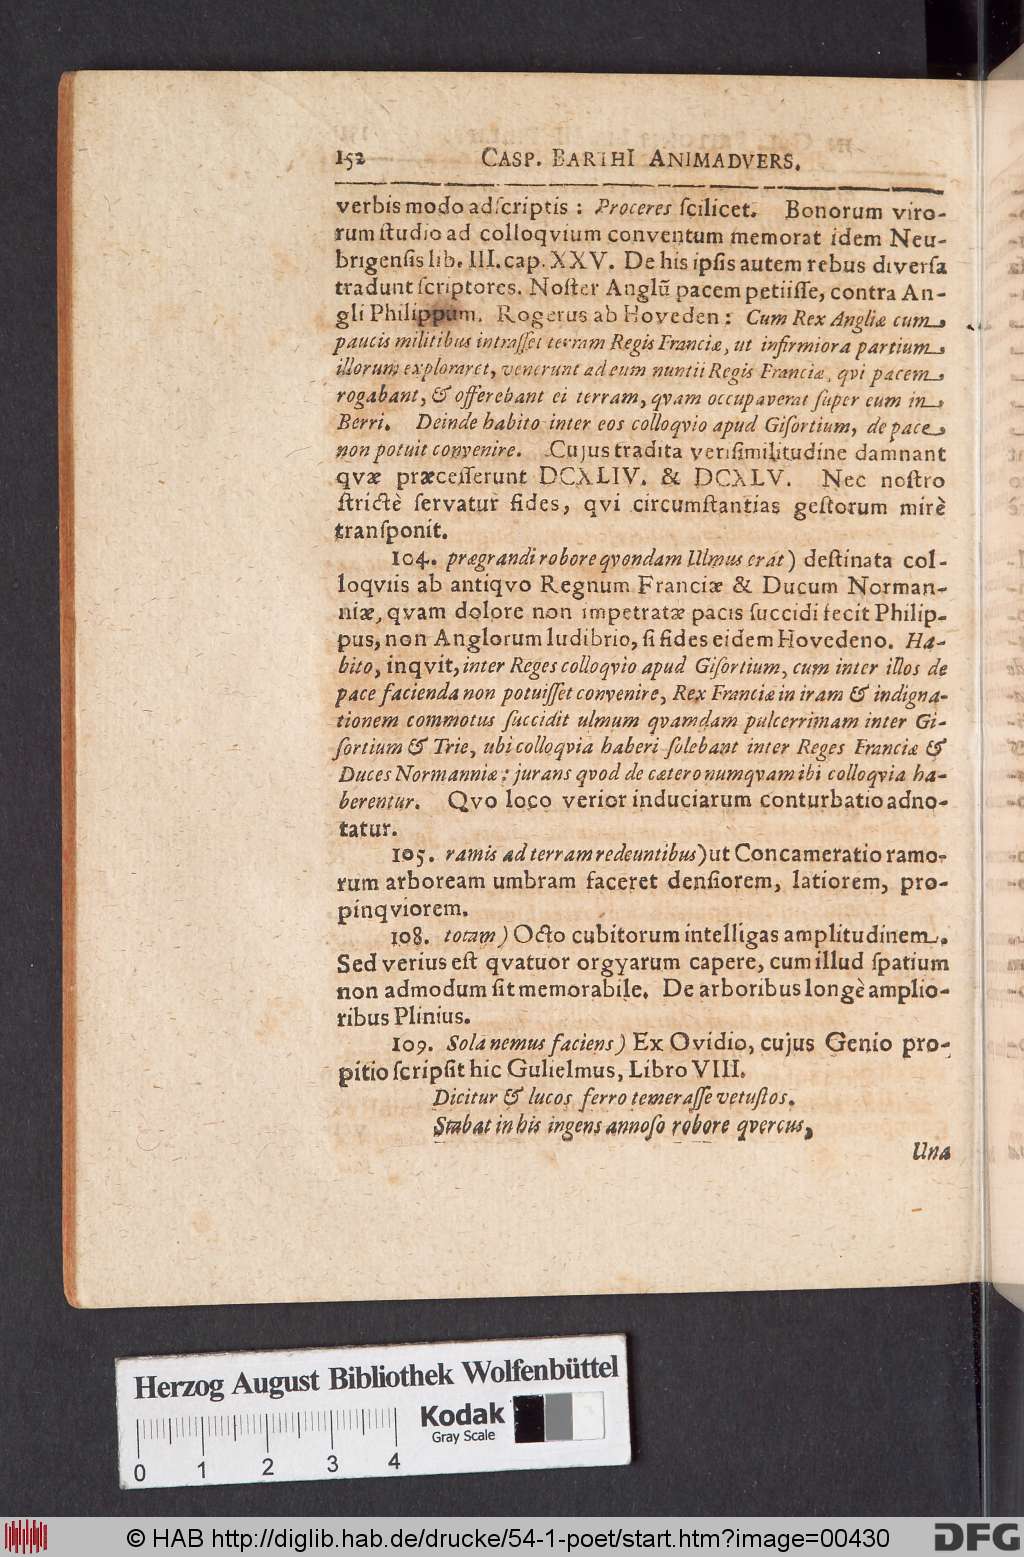 152 CASP. BARTHI ANIMADVERS.
verbis modo adſcriptis : Proceres ſcilicet. Bonorum viro-
rum ſtudio ad colloqvium conventum memorat idem Neu-
brigenſis lib. III. cap. XXV. De his ipſis autem rebus diverſa
tradunt ſcriptores. Noſter Anglũ pacem petiiſſe, contra An-
gli Philippum. Rogerus ab Hoveden : Cum Rex Angliæ cum
paucis militibus intraſſet terram Regis Franciæ, ut infirmiora partium
illorum exploraret, venerunt ad eum nuntii Regis Franciæ, qvi pacem
rogabant, & offerebant ei terram, qvam occupaverat ſuper eum in
Berri. Deinde habito inter eos colloqvio apud Giſortium, de pace
non potuit convenire. Cujus tradita veriſimilitudine damnant
qvæ præceſſerunt DCXLIV. & DCXLV. Nec noſtro
ſtrictè ſervatur fides, qvi circumſtantias geſtorum mirè
tranſponit.
104. prægrandi robore qvondam Ulmus erat) deſtinata col-
loqviis ab antiqvo Regnum Franciæ & Ducum Norman-
niæ, qvam dolore non impetratæ pacis ſuccidi fecit Philip-
pus, non Anglorum ludibrio, ſi fides eidem Hovedeno. Ha-
bito, inqvit, inter Reges colloqvio apud Giſortium, cum inter illos de
pace facienda non potuiſſet convenire, Rex Franciæ in iram & indigna-
tionem commotus ſuccidit ulmum qvamdam pulcerrimam inter Gi-
ſortium & Trie, ubi colloqvia haberi ſolebant inter Reges Franciæ &
Duces Normanniæ ; jurans qvod de cætero numqvam ibi colloqvia ha-
berentur. Qvo loco verior induciarum conturbatio adno-
tatur.
105. ramis ad terram redeuntibus) ut Concameratio ramo-
rum arboream umbram faceret denſiorem, latiorem, pro-
pinqviorem.
108. totam) Octo cubitorum intelligas amplitudinem.
Sed verius eſt qvatuor orgyarum capere, cum illud ſpatium
non admodum ſit memorabile. De arboribus longè amplio-
ribus Plinius.
109. Sola nemus faciens) Ex Ovidio, cujus Genio pro-
pitio ſcripſit hic Gulielmus, Libro VIII.
Dicitur & lucos ferro temeraſſe vetuſtos.
Stabat in his ingens annoſo robore qvercus,
Una
Herzog August Bibliothek Wolfenbüttel
Kodak
Gray Scale
0 1 2 3 4
© HAB http://diglib.hab.de/drucke/54-1-poet/start.htm?image=00430
DFG